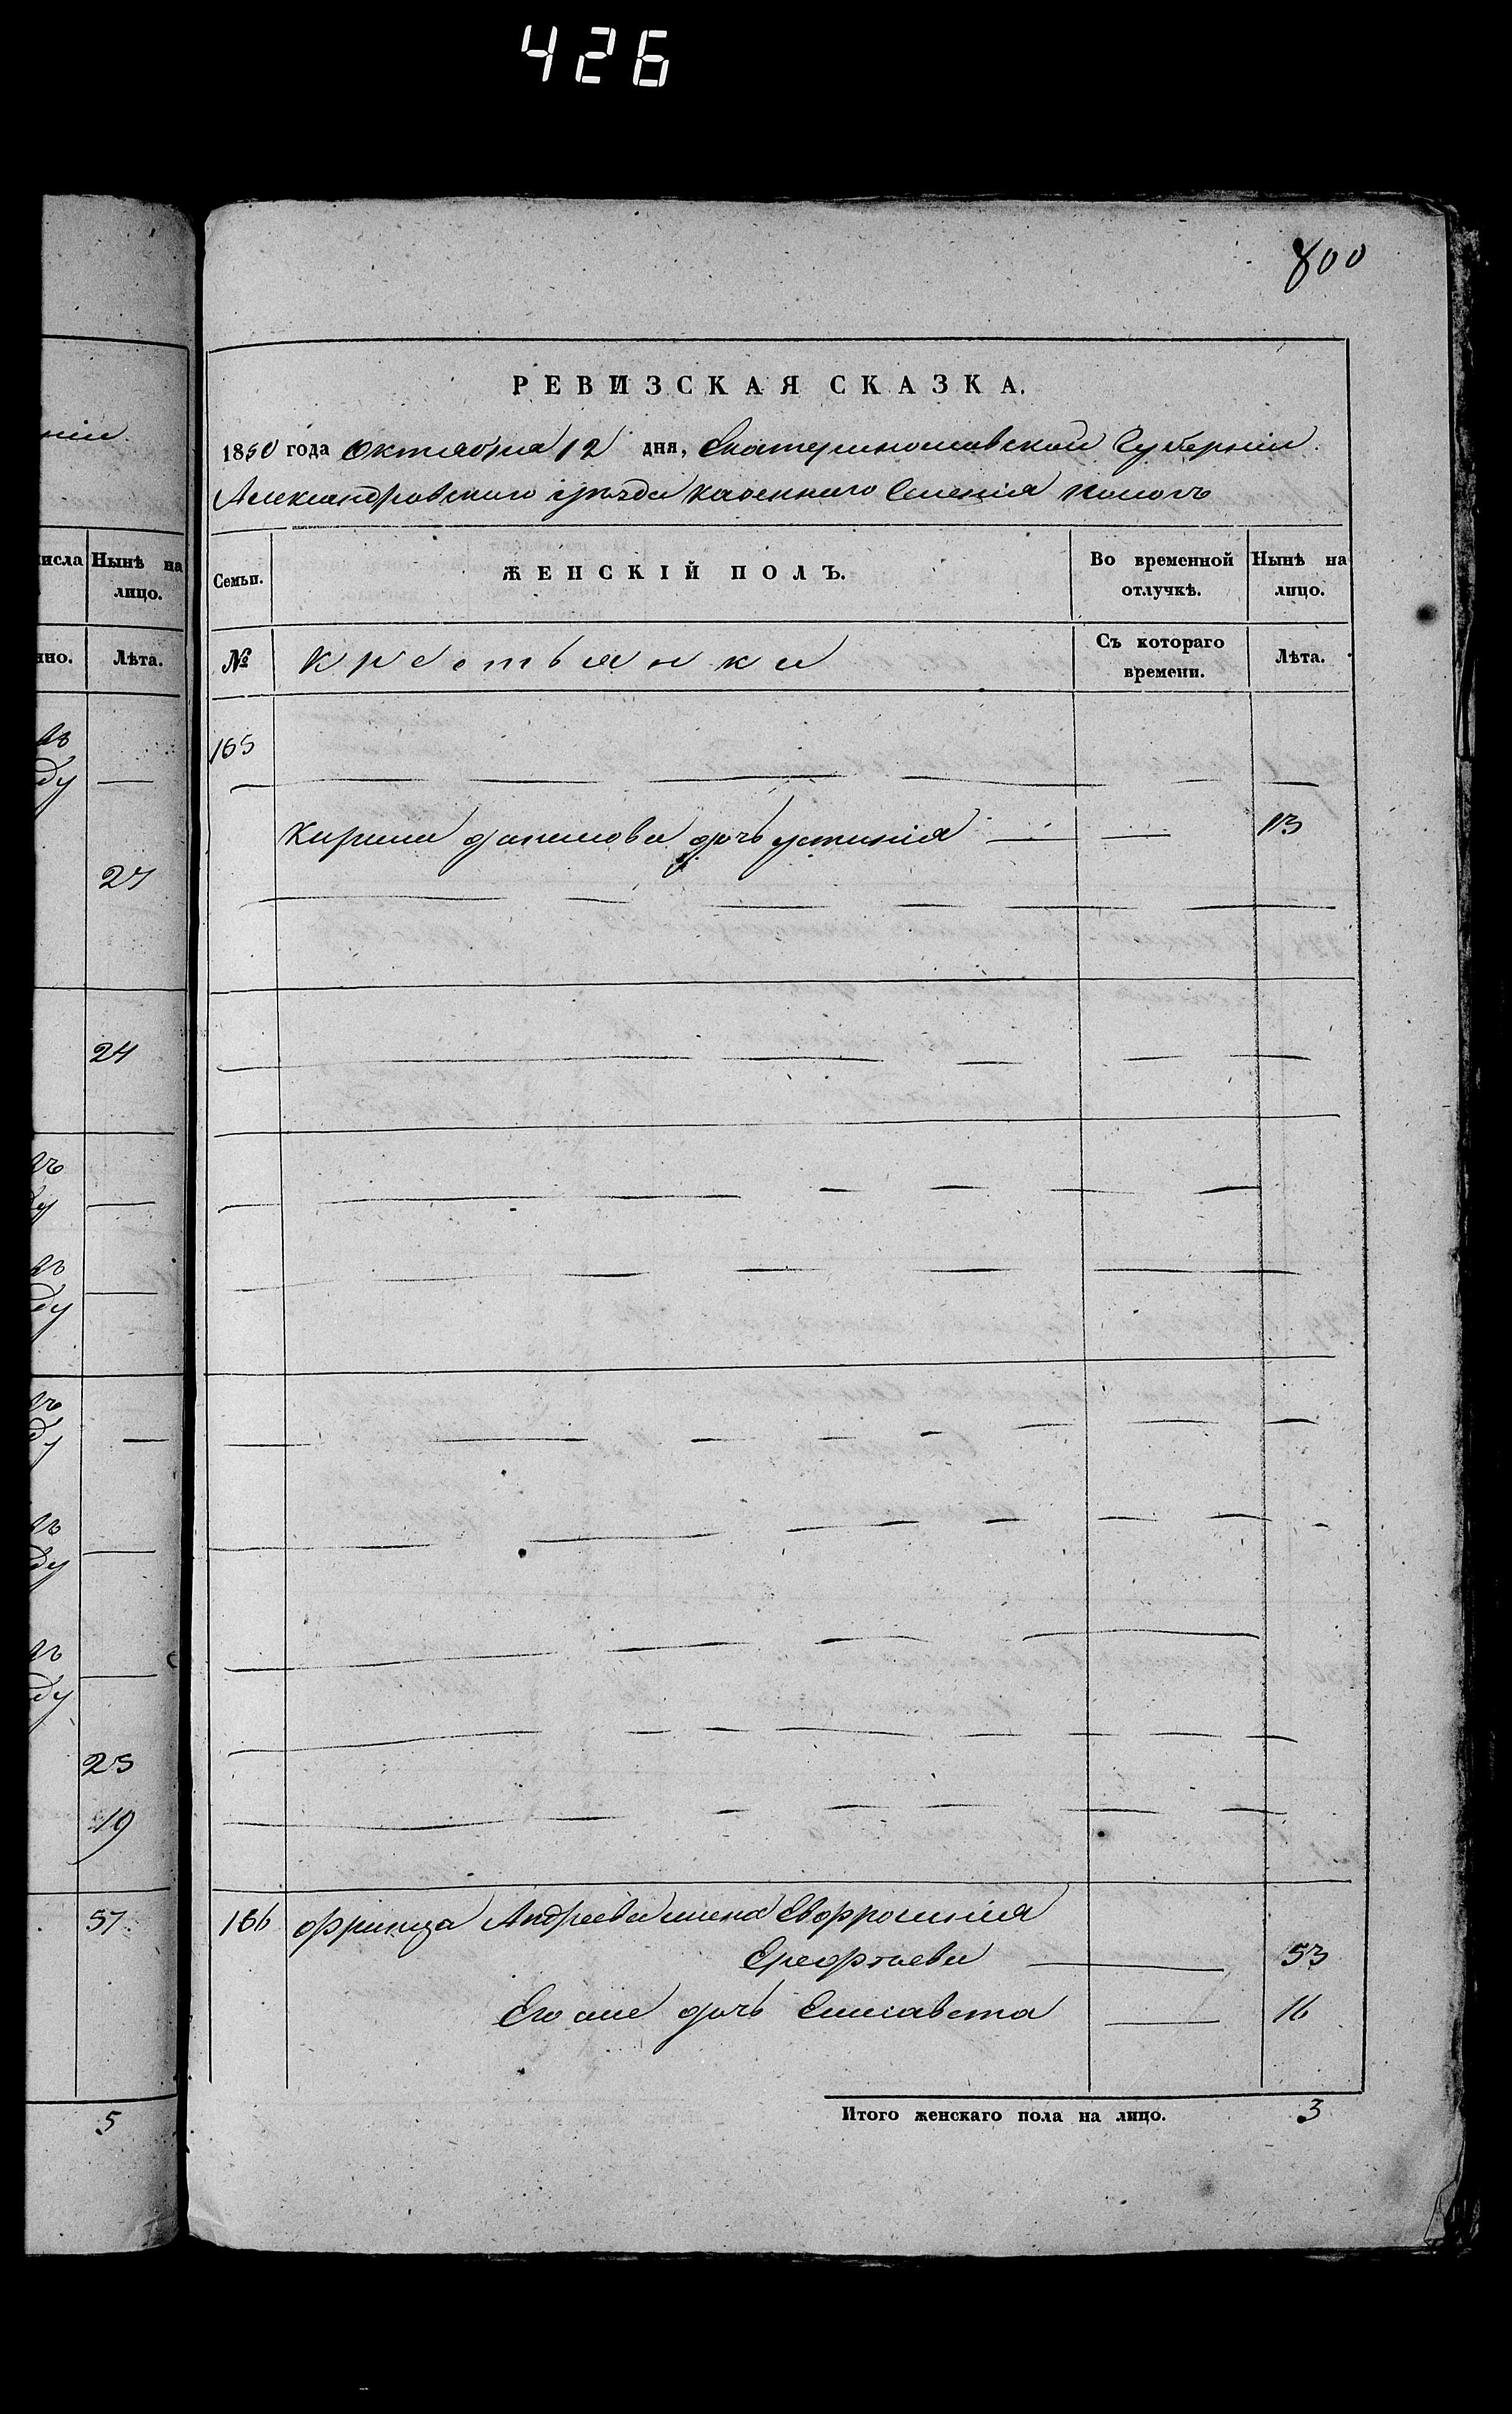 426
800
РЕВИЗСКАЯ СКАЗКА.
1850 года Октября 12 дня, Екатеринославской Губерніи
Александровскаго уѣзда казеннаго Селенія
Семьи. ЖЕНСКІЙ ПОЛЪ. Во временной отлучкѣ. Нынѣ на лицо.
№ Крестьянки Съ котораго времени. Лѣта.
165
Кирила Данилова дочь Устинія — — 13
166 Андреева жена Евфросинія
— 53
Его же дочь Елисавета — 16
Итого женскаго пола на лицо. 3
числа Нынѣ на лицо.
Лѣта.
27
24
25
19
57
5